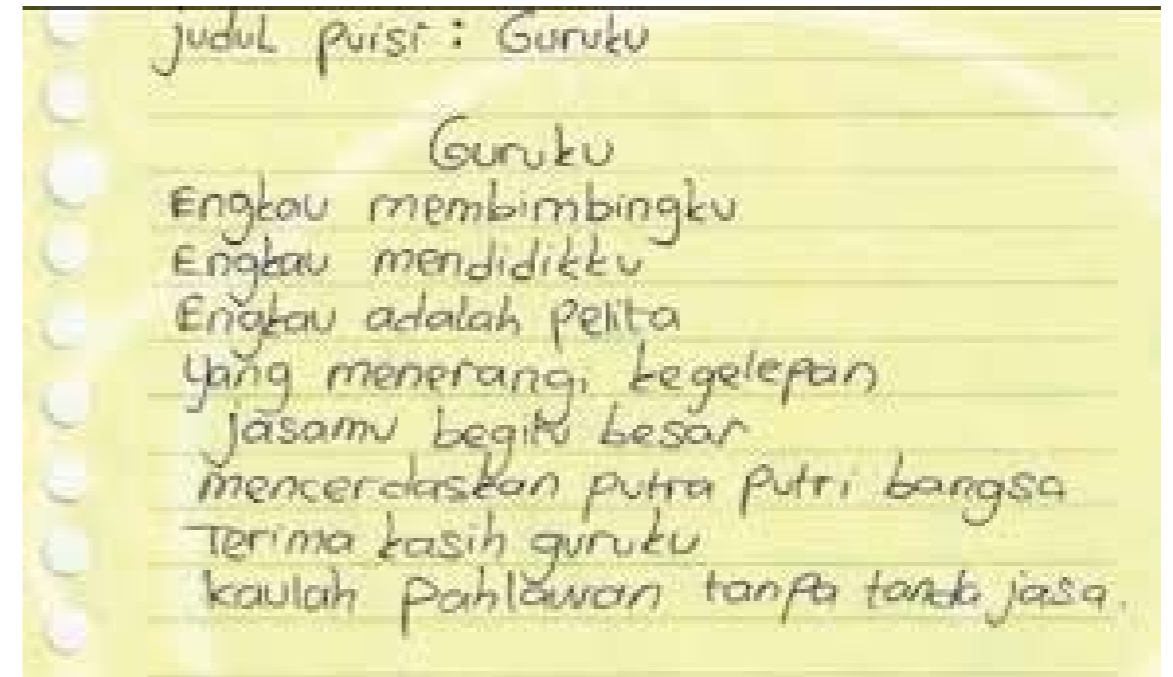 Judul puisi : Guruku
Guruku
Engkau membimbingku
Engkau mendidikku
Engkau adalah pelita
yang menerangi kegelepan
Jasamu begitu besar
mencerdaskan putra putri bangsa
Terima kasih guruku
kaulah pahlawan tanpa tanda jasa.